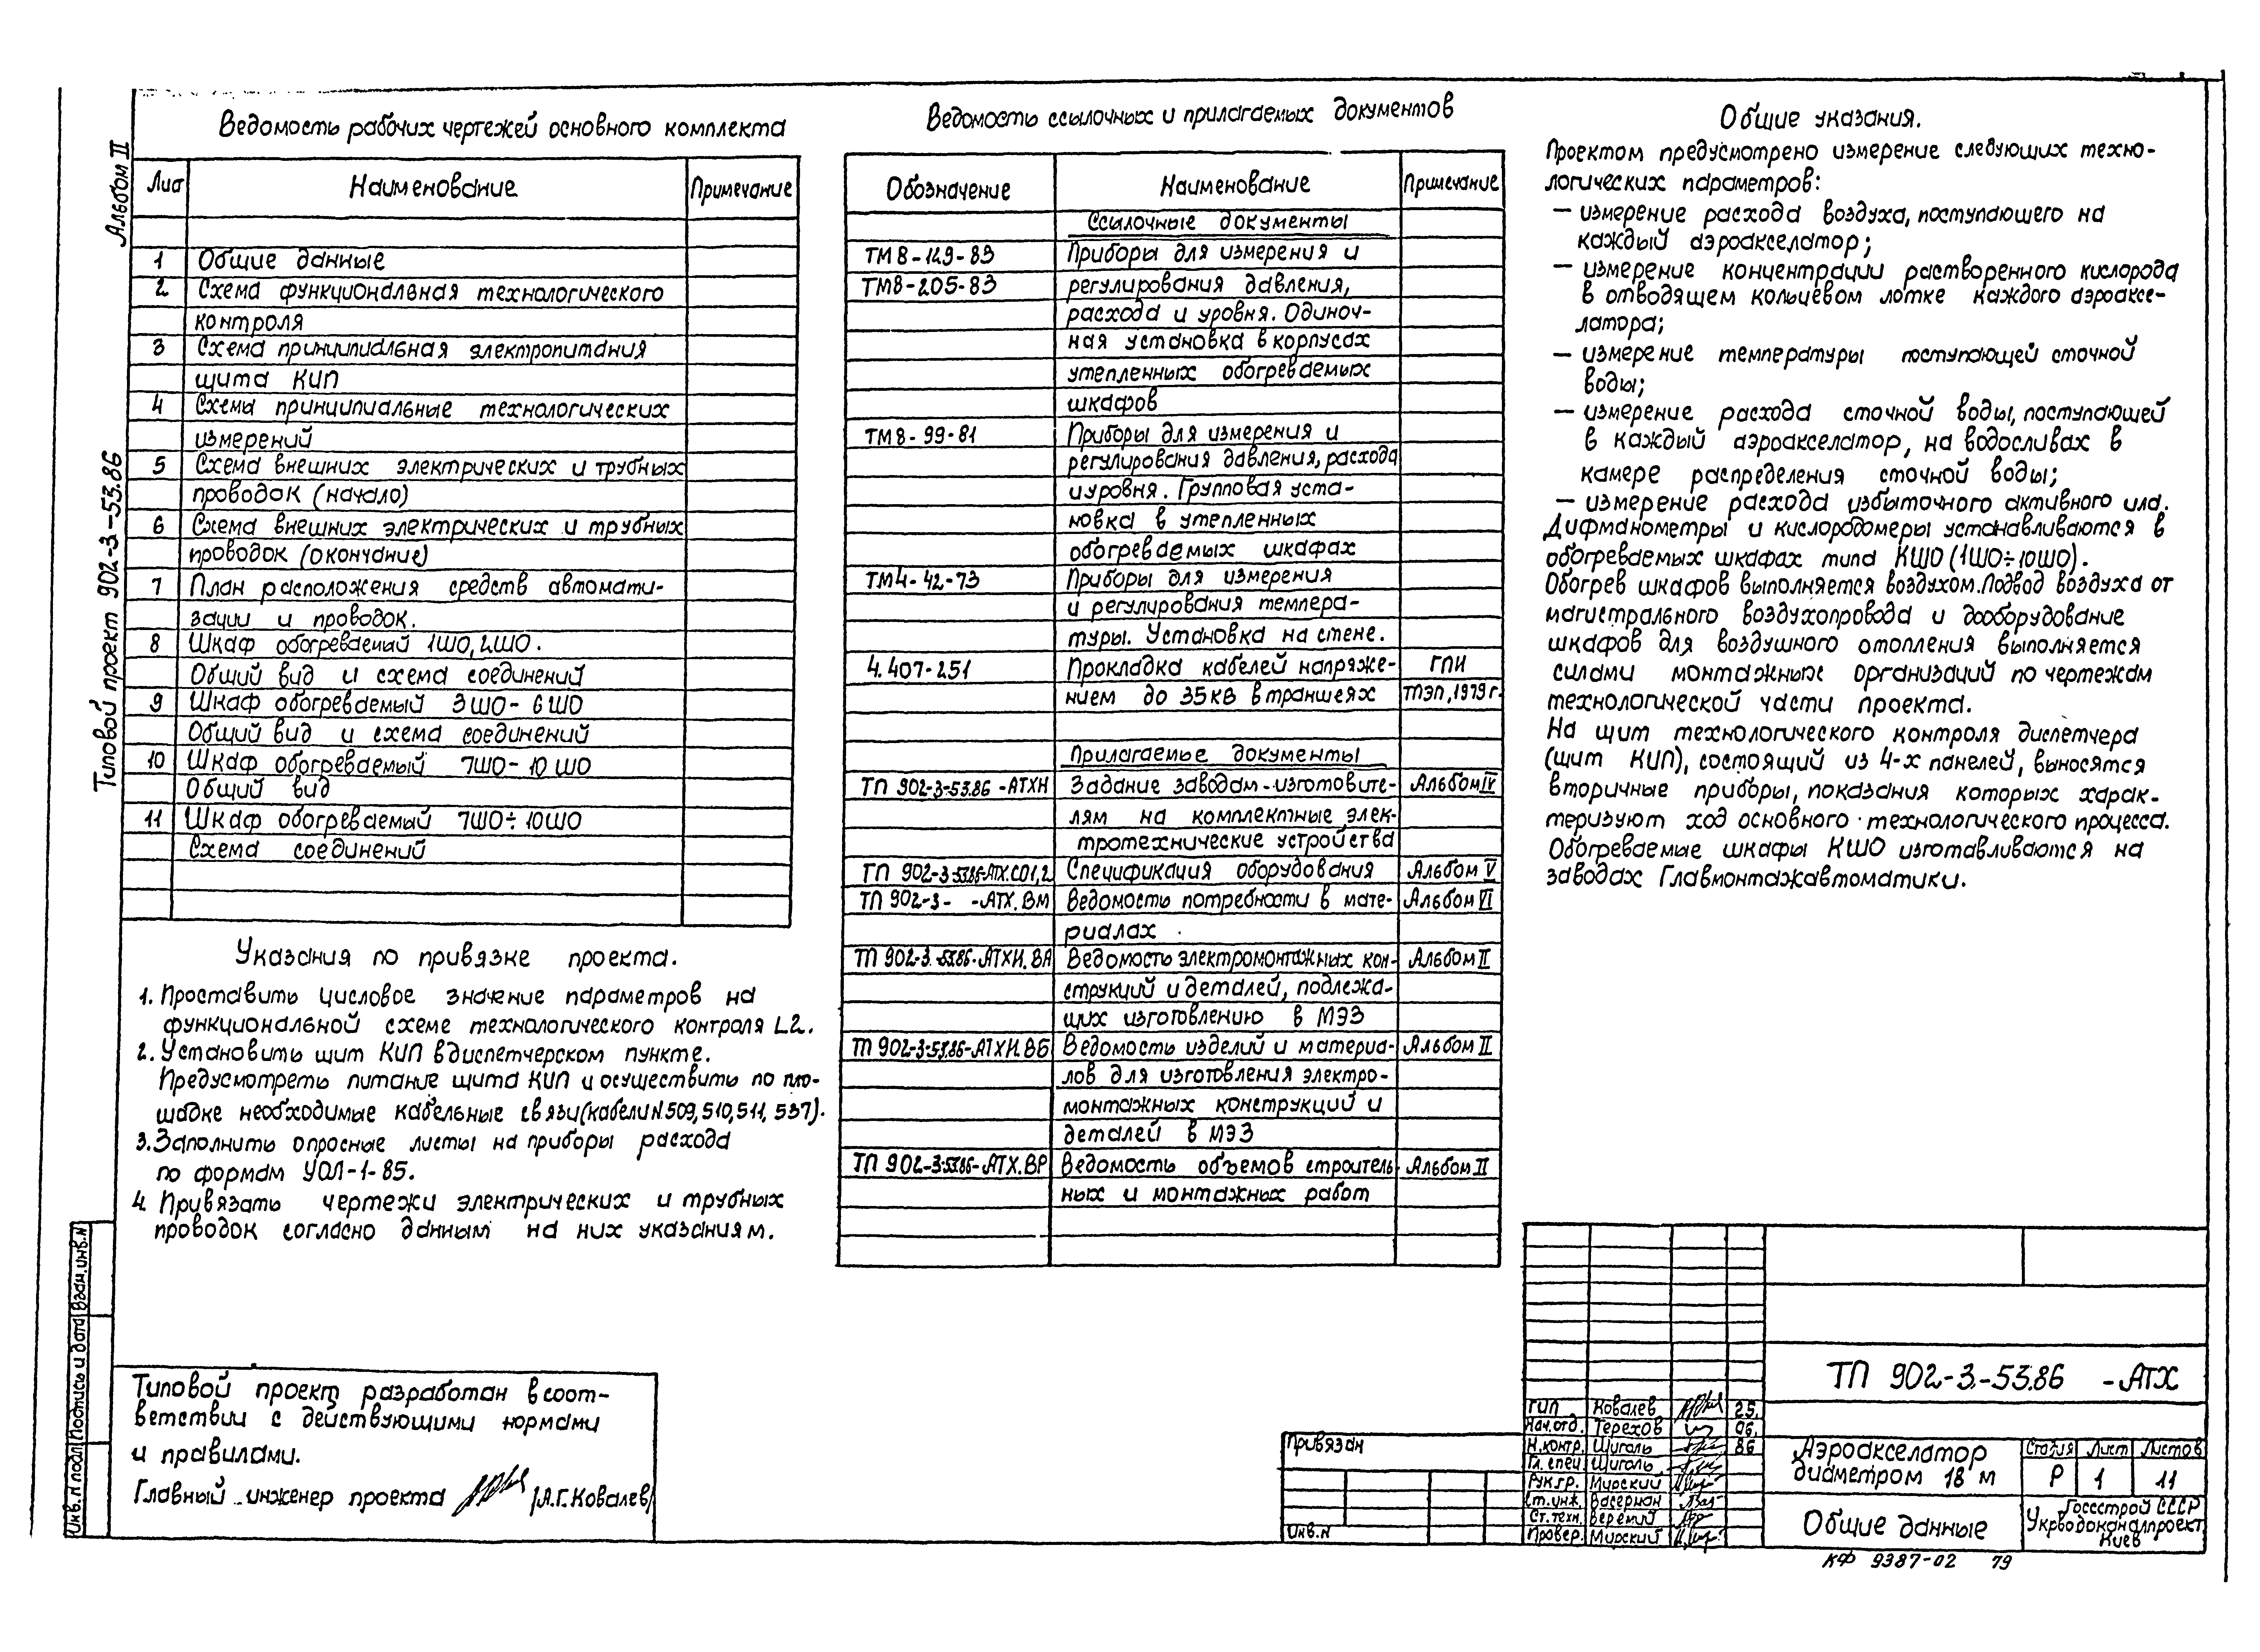 Альбом II
Типовой проект 902-3-53.86
Ведомость рабочих чертежей основного комплекта
Лист Наименование Примечание
1 Общие данные
2 Схема функциональная технологического
контроля
3 Схема принципиальная электропитания
щита КИП
4 Схемы принципиальные технологических
измерений
5 Схема внешних электрических и трубных
проводок (начало)
6 Схема внешних электрических и трубных
проводок (окончание)
7 План расположения средств автомати-
зации и проводок.
8 Шкаф обогреваемый 1ШО, 2ШО.
Общий вид и схема соединений
9 Шкаф обогреваемый 3ШО- 6ШО
Общий вид и схема соединений
10 Шкаф обогреваемый 7ШО- 10ШО
Общий вид
11 Шкаф обогреваемый 7ШО÷10ШО
Схема соединений
Указания по привязке проекта.
1. Проставить цисловое значение параметров на
функциональной схеме технологического контроля L2.
2. Установить щит КИП в диспетчерском пункте.
Предусмотреть питание щита КИП и осуществить по пло-
щадке необходимые кабельные связи(кабели N 509, 510, 511, 537).
3. Заполнить опросные листы на приборы расхода
по формам УОЛ-1-85.
4. Привязать чертежи электрических и трубных
проводок согласно данным на них указаниям.
Типовой проект разработан в соот-
ветствии с действующими нормами
и правилами.
Главный инженер проекта /А.Г.Ковалев/
Инв. N подл. Подпись и дата Взам. инв. N
Ведомость ссылочных и прилагаемых документов
Обозначение Наименование Примечание
Ссылочные документы
ТМ8-149-83 Приборы для измерения и
ТМ8-205-83 регулирования давления,
расхода и уровня. Одиноч-
ная установка в корпусах
утепленных обогреваемых
шкафов
ТМ8-99-81 Приборы для измерения и
регулирования давления, расхода
и уровня. Групповая уста-
новка в утепленных
обогреваемых шкафах
ТМ4-42-73 Приборы для измерения
и регулирования темпера-
туры. Установка на стене.
4.407-251 Прокладка кабелей напряже- ГПИ
нием до 35кВ в траншеях ТЭП, 1979г.
Прилагаемые документы
ТП 902-3-53.86 -АТХН Задание заводам-изготовите- Альбом IV
лям на комплектные элек-
тротехнические устройства
ТП 902-3-53.86-АТХ.СО1,2 Спецификация оборудования Альбом V
ТП 902-3- -АТХ.ВМ Ведомость потребности в мате- Альбом VI
риалах
ТП 902-3-53.86-АТХИ.ВА Ведомость электромонтажных кон- Альбом II
струкций и деталей, подлежа-
щих изготовлению в МЭЗ
ТП 902-3-53.86-АТХИ.ВБ Ведомость изделий и материа- Альбом II
лов для изготовления электро-
монтажных конструкций и
деталей в МЭЗ
ТП 902-3-53.86-АТХ.ВР Ведомость объемов строитель- Альбом II
ных и монтажных работ
Общие указания.
Проектом предусмотрено измерение следующих техно-
логических параметров:
— измерение расхода воздуха, поступающего на
каждый аэроакселатор;
— измерение концентрации растворенного кислорода
в отводящем кольцевом лотке каждого аэроаксе-
латора;
— измерение температуры поступающей сточной
воды;
— измерение расхода сточной воды, поступающей
в каждый аэроакселатор, на водосливах в
камере распределения сточной воды;
— измерение расхода избыточного активного ила.
Дифманометры и кислородомеры устанавливаются в
обогреваемых шкафах типа КШО (1ШО÷10ШО).
Обогрев шкафов выполняется воздухом. Подвод воздуха от
магистрального воздухопровода и дооборудование
шкафов для воздушного отопления выполняется
силами монтажных организаций по чертежам
технологической части проекта.
На щит технологического контроля диспетчера
(щит КИП), состоящий из 4-х панелей, выносятся
вторичные приборы, показания которых харак-
теризуют ход основного технологического процесса.
Обогреваемые шкафы КШО изготавливаются на
заводах Главмонтажавтоматики.
Привязан
Инв. N
ГИП Ковалев 25.
Нач.отд. Терехов 06.
Н.контр. Шигаль 86
Гл. спец. Шигаль
Рук.гр. Мирский
Ст.инж. Васерман
Ст.техн. Веремий
Провер. Мирский
ТП 902-3-53.86 -АТХ
Аэроакселатор
диаметром 18 м
Стадия Лист Листов
Р 1 11
Общие данные
Госстрой СССР
Укрводоканалпроект
Киев
КФ 9387-02 79